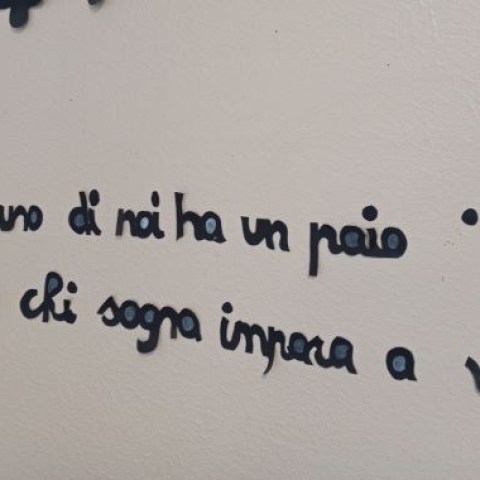 uno di noi ha un paio
chi sogna impara a